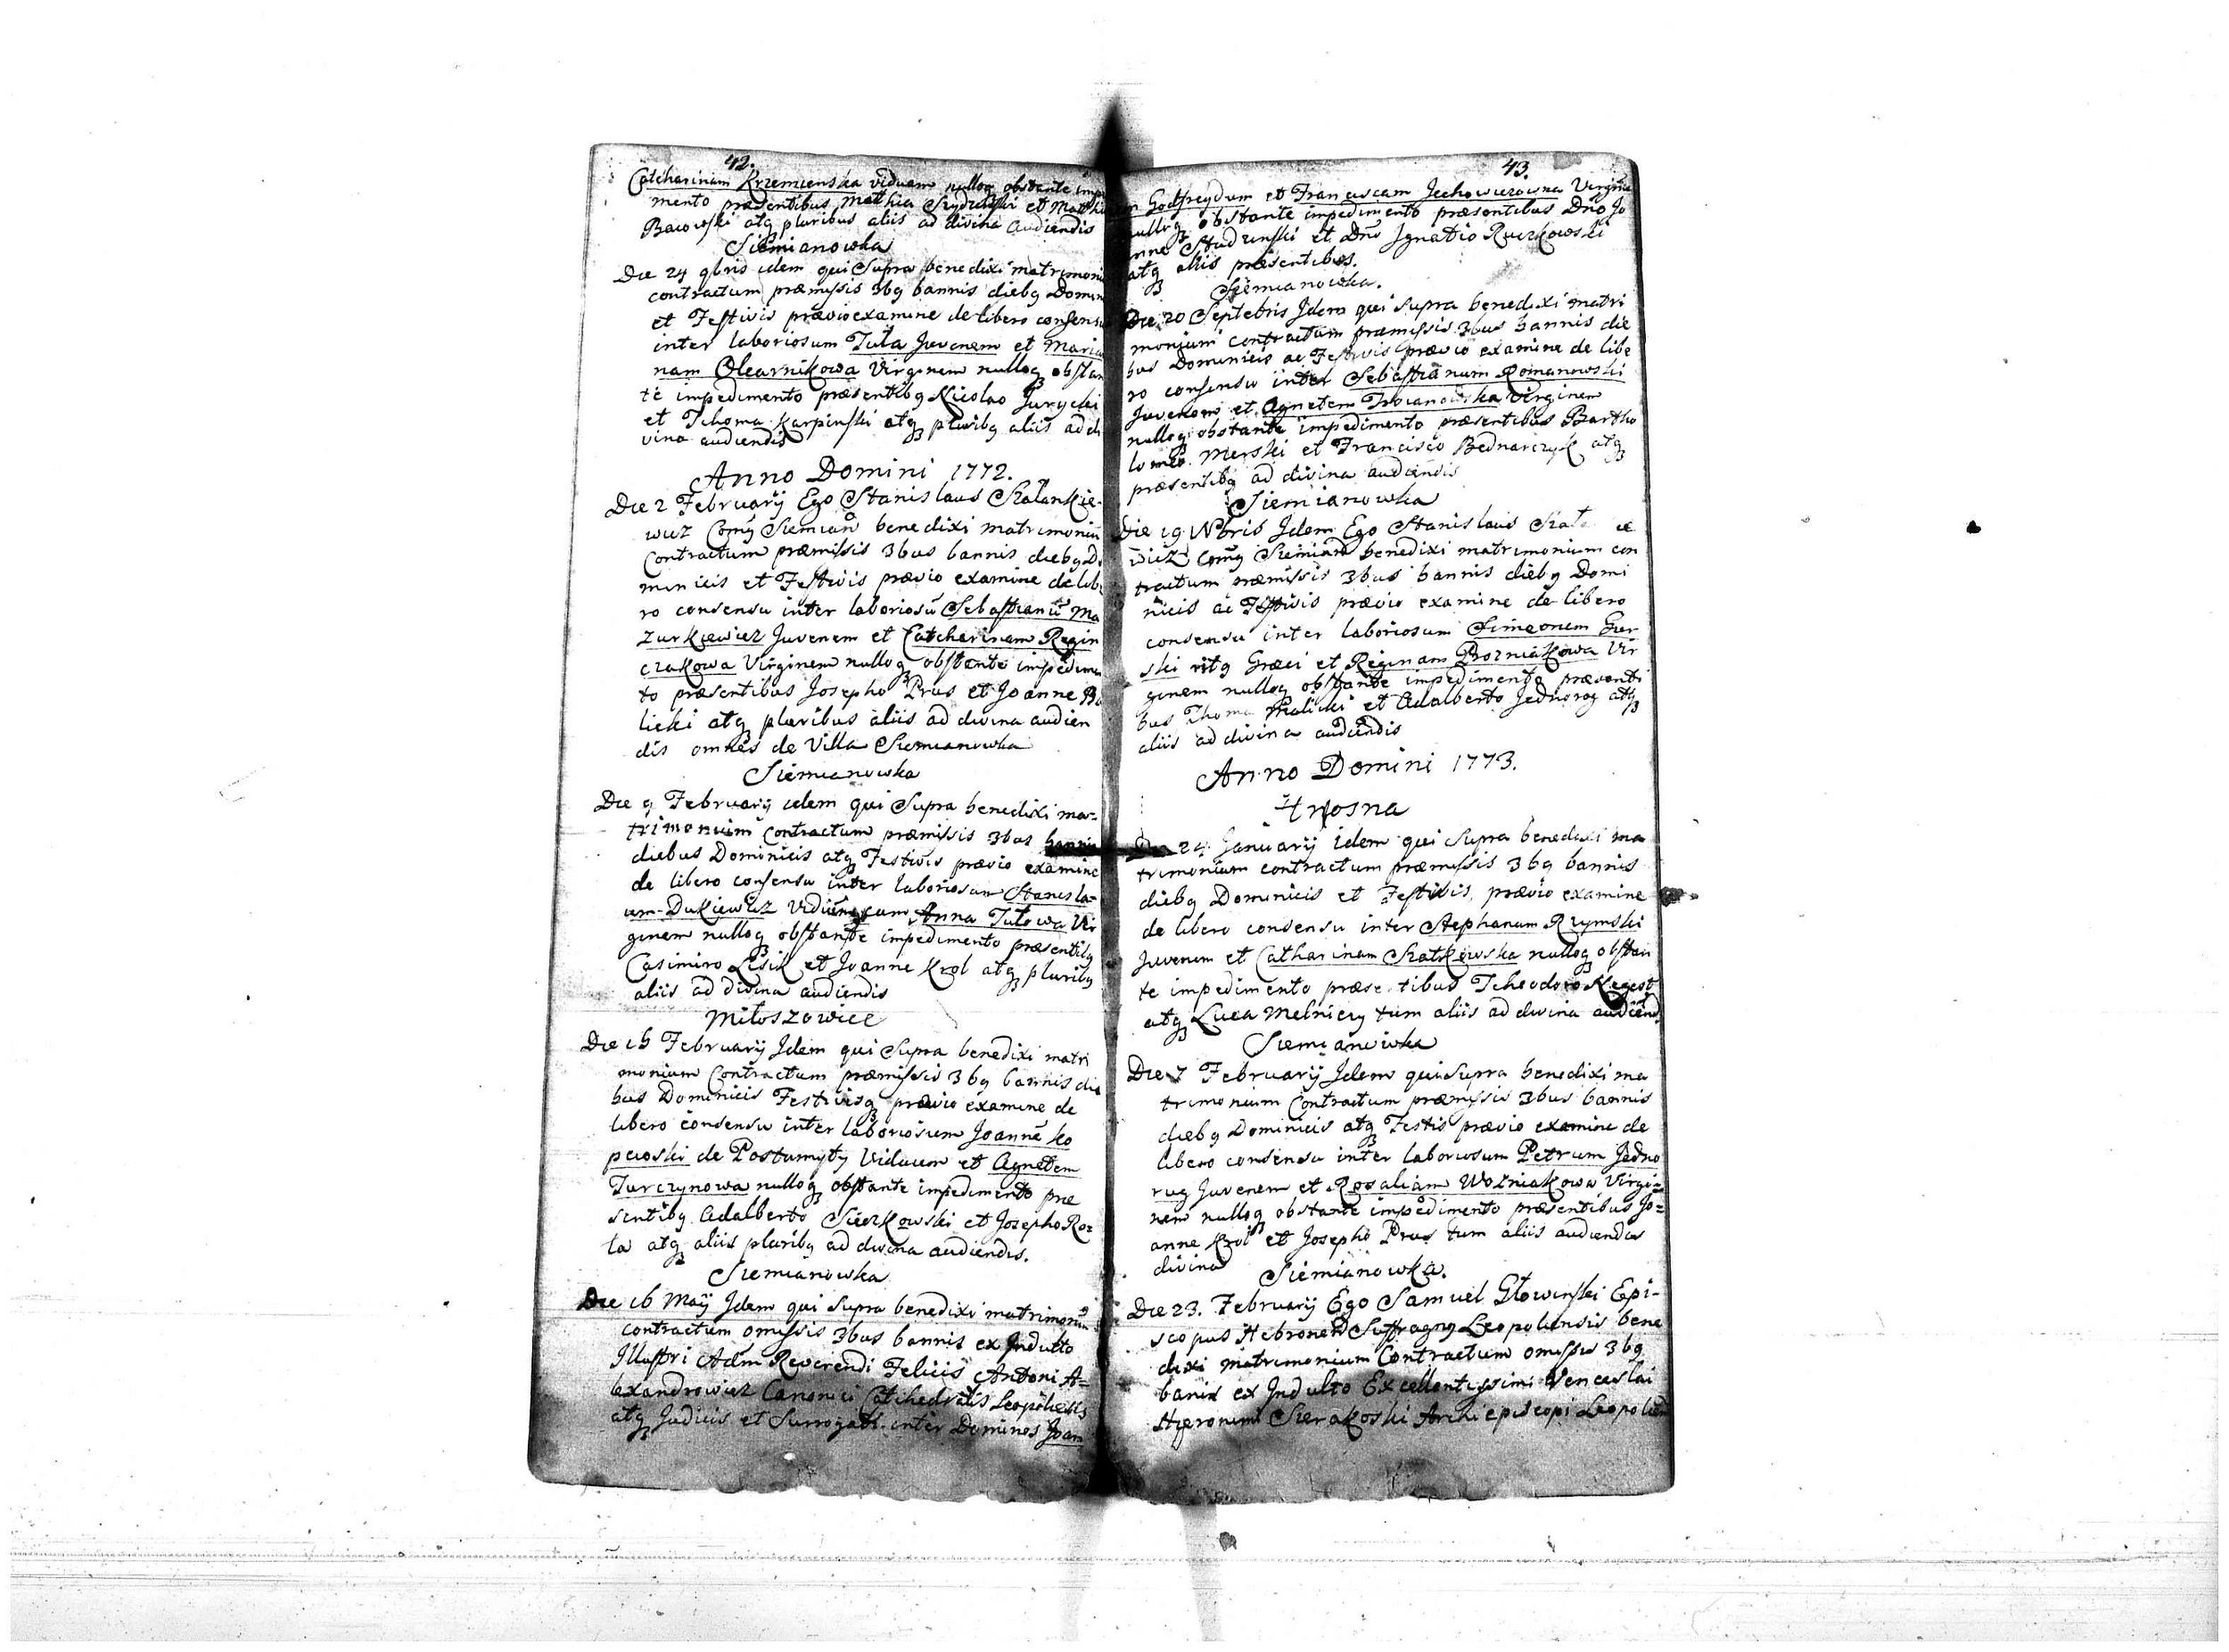 42.
Catcharinam Krzemienska viduam nulloq obstante impe
mento præsentibus Mathia Szydelski et Math
Bacowski atq pluribus aliis ad divina audiendis
Siemianowka
Die 24 9bris idem qui Supra benedixi matrimoni
contractum præmissis 3bq bannis diebq Domin
et Festivis prævio examine de libero consensu
inter laboriosum Tuła Juvenem et Maria
nam Olearnikowa Virginem nulloq obstan
te impedimento præsentibq Nicolao Jurycki
et Thoma Karpinski atq pluribq aliis ad di
vina audiendis
Anno Domini 1772.
Die 2 Februarij Ego Stanislaus Szalankie-
wicz Comq Siemian benedixi matrimoniu
Contractum præmissis 3bus bannis diebq Do
minicis et Festivis prævio examine de libe
ro consensu inter laboriosū Sebastianū Ma
zurkiewicz Juvenem et Catcharinam Regin
czakowa Virginem nulloq obstante impedimen
to præsentibus Josepho Prus et Joanne Ba
licki atq pluribus aliis ad divina audien
dis omnes de Villa Siemianowka
Siemianowka
Die 9 Februarij idem qui Supra benedixi ma-
trimonium Contractum præmissis 3bus bannis
diebus Dominicis atq Festivis prævio examine
de libero consensu inter laboriosum Stanisla-
um Dukiewicz Viduum cum Anna Tułowa Vir
ginem nulloq obstante impedimento præsentibq
Casimiro Lesik et Joanne Krol atq pluribq
aliis ad divina audiendis
Miłoszowice
Die 16 Februarij Idem qui Supra benedixi matri
monium Contractum præmissis 3bq bannis die
bus Dominicis Festivisq prævio examine de
libero consensu inter laboriosum Joannē Ko
pewski de Postumyty Viduum et Agnetem
Turczynowa nulloq obstante impedimento præ
sentibq Adalberto Sieczkowski et Josepho Ro-
la atq aliis pluribq ad divina audiendis.
Siemianowka
Die 16 Maij Idem qui Supra benedixi matrimoniu
contractum omissis 3bus bannis ex Indulto
Illustri Adm Reverendi Felicis Antoni A=
lexandrowicz Canonici Catchedralis Leopoliensis
atq Judicis et Surrogati inter Dominos Joan
43.
m Godfreydum et Franciscam Jechowiczowna Virgine
nulloq obstante impedimento præsentibus Dno Jo
anne Studzinski et Dno Ignatio Ruczkowski
atq aliis præsentibus.
Siemianowka.
Die 20 Septebris Idem qui Supra benedixi matri
monium contractum præmissis 3bus bannis die
bus Dominicis ac Festivis prævio examine de libe
ro consensu inter Sebastianum Romanowski
Juvenem et Agnetem Troianowska Virginem
nulloq obstante impedimento præsentibus Bartho
lomeo Merski et Francisco Bednarczyk atq
præsentibq ad divina audiendis
Siemianowka
Die 19 Nbris Idem Ego Stanislaus
wicz Comq Siemian benedixi matrimonium con
tractum præmissis 3bus bannis diebq Domi
nicis ac Festivis prævio examine de libero
consensu inter laboriosum Simeonem Gur
ski ritq Græci et Reginam Prozniakowa Vir
ginem nulloq obstante impedimento præsenti
bus Thoma Pralicki et Adalberto Jednorog atq
aliis ad divina audiendis
Anno Domini 1773.
Hrosna
Die 24 Januarij idem qui Supra benedixi ma
trimonium contractum præmissis 3bq bannis
diebq Dominicis et Festivis, prævio examine
de libero consensu inter Stephanum Rzymski
Juvenem et Catharinam Szatkowska nulloq obstan
te impedimento præsentibus Theodoro Kegest
atq Luca Melniczy tum aliis ad divina audiend
Siemianowka
Die 7 Februarij Idem qui Supra benedixi ma
trimonium Contractum præmissis 3bus bannis
diebq Dominicis atq Festis prævio examine de
libero consensu inter laboriosum Petrum Jedno
rug Juvenem et Rosaliam Wozniakowa Virgi=
nem nulloq obstante impedimento præsentibus Jo=
anne Krol et Josepho Prus tum aliis audiendis
divina
Siemianowka.
Die 23. Februarij Ego Samuel Głowinski Epi-
scopus Hebronen Suffragnq Leopoliensis bene
dixi matrimonium Contractum omissis 3bq
banis ex Indulto Excellentissimi Venceslai
Hieronimi Sierakoski Archiepiscopi Leopolien